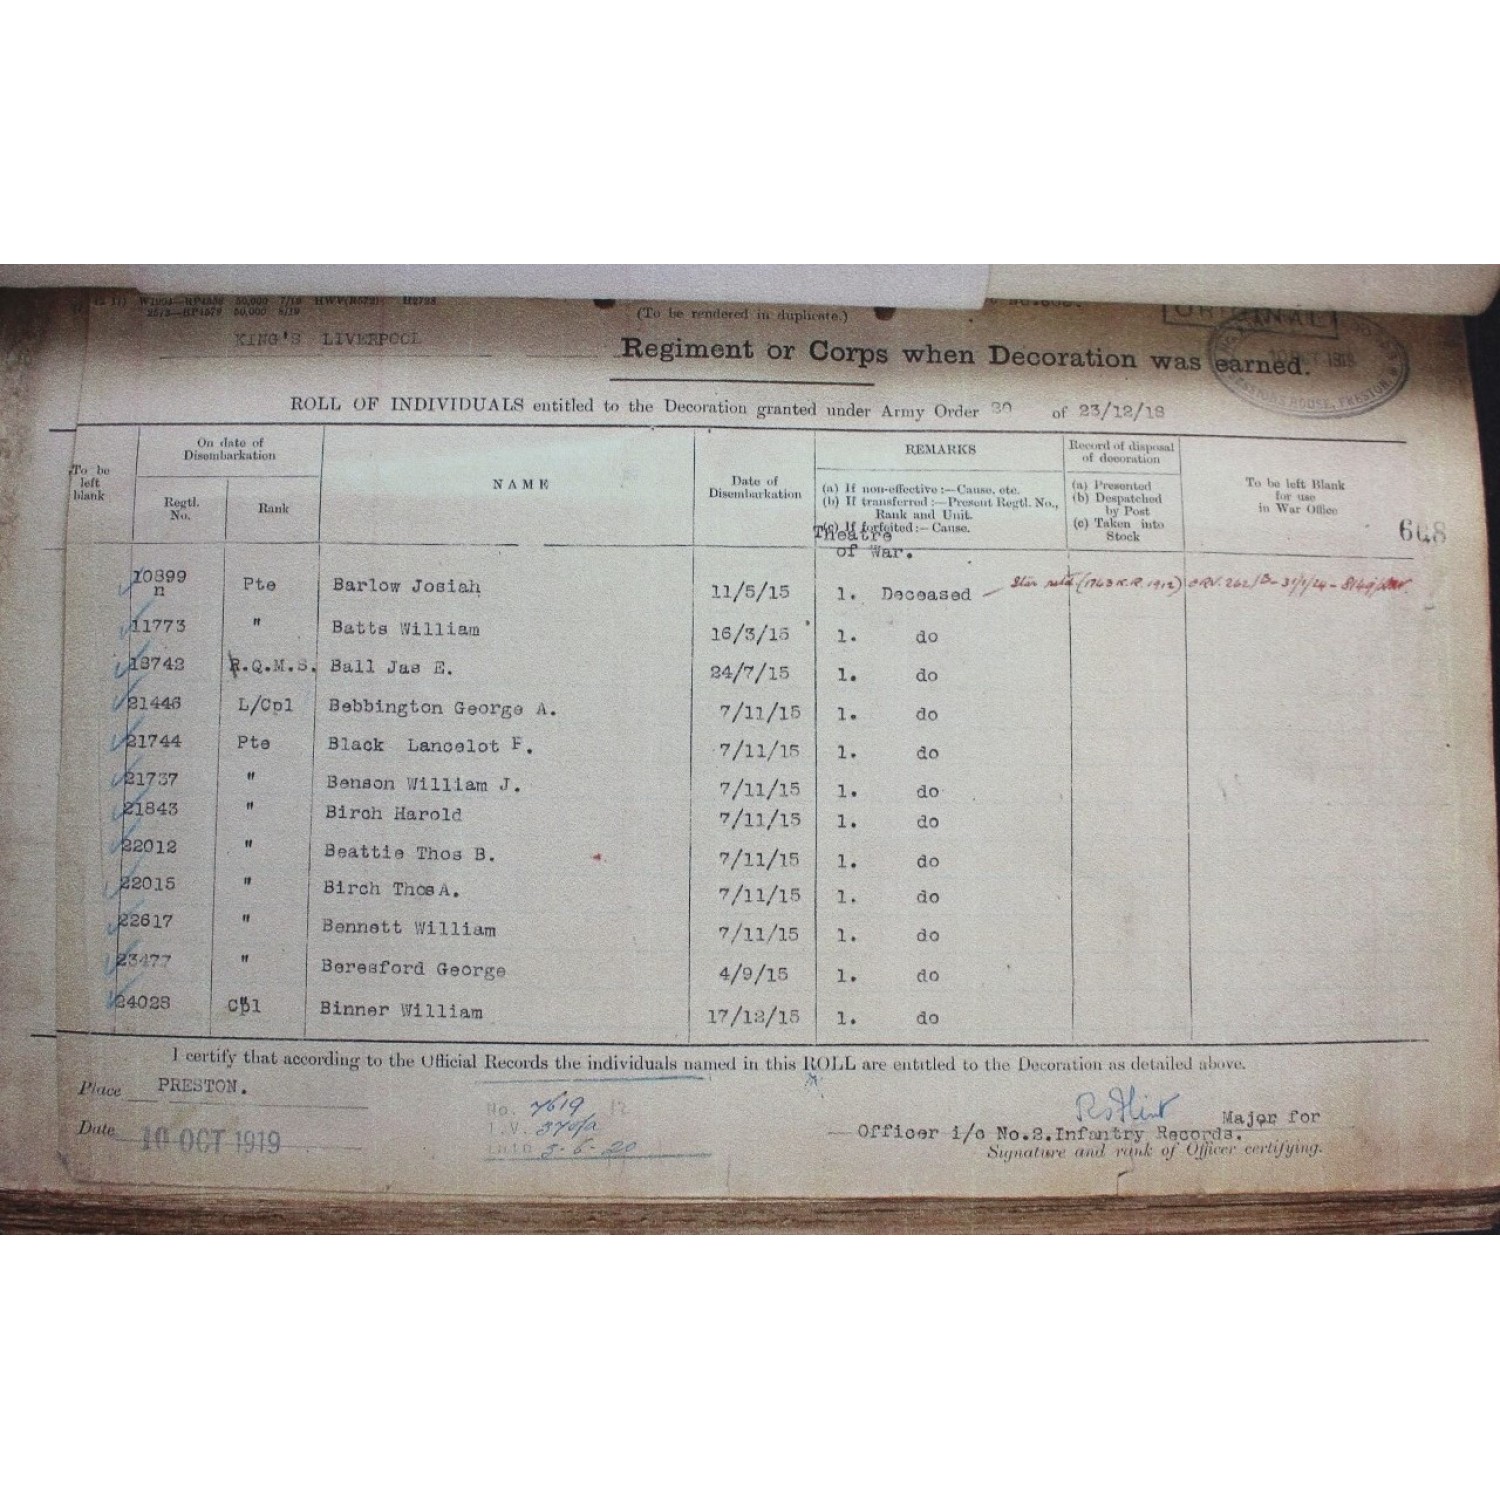 50,000 7/19 HWV(R572) H2738
50,000 8/19
(To be rendered in duplicate.)
ORIGINAL
KING'S LIVERPOOL
Regiment or Corps when Decoration was earned.
ROLL OF INDIVIDUALS entitled to the Decoration granted under Army Order 20 of 23/12/18
To be left blank
On date of Disembarkation
Regtl. No.
Rank
NAME
Date of Disembarkation
REMARKS
(a) If non-effective :—Cause, etc.
(b) If transferred :—Present Regtl. No., Rank and Unit.
(c) If forfeited :—Cause.
Theatre of War.
Record of disposal of decoration
(a) Presented
(b) Despatched by Post
(c) Taken into Stock
To be left Blank for use in War Office
668
10899 n Pte Barlow Josiah 11/5/15 1. Deceased Star retd (1743 K.R. 1912)
11773 " Batts William 16/3/15 1. do
13742 R.Q.M.S. Ball Jas E. 24/7/15 1. do
21446 L/Cpl Bebbington George A. 7/11/15 1. do
21744 Pte Black Lancelot F. 7/11/15 1. do
21737 " Benson William J. 7/11/15 1. do
21843 " Birch Harold 7/11/15 1. do
22012 " Beattie Thos B. 7/11/15 1. do
22015 " Birch Thos A. 7/11/15 1. do
22617 " Bennett William 7/11/15 1. do
23477 " Beresford George 4/9/15 1. do
24028 Cpl Binner William 17/12/15 1. do
I certify that according to the Official Records the individuals named in this ROLL are entitled to the Decoration as detailed above.
Place PRESTON.
Date 10 OCT 1919
No. 7619
I.V. 370/A
DATE 5-6-20
Major for
Officer i/c No.2.Infantry Records.
Signature and rank of Officer certifying.